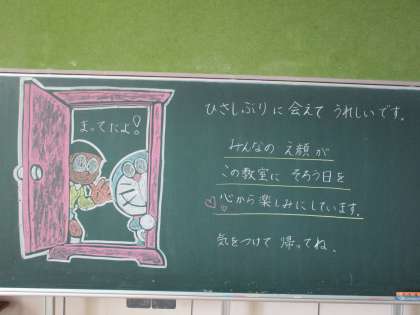 まってたよ!
ひさしぶりに会えてうれしいです。
みんなのえ顔が
この教室にそろう日を
心から楽しみにしています。
気をつけて帰ってね。